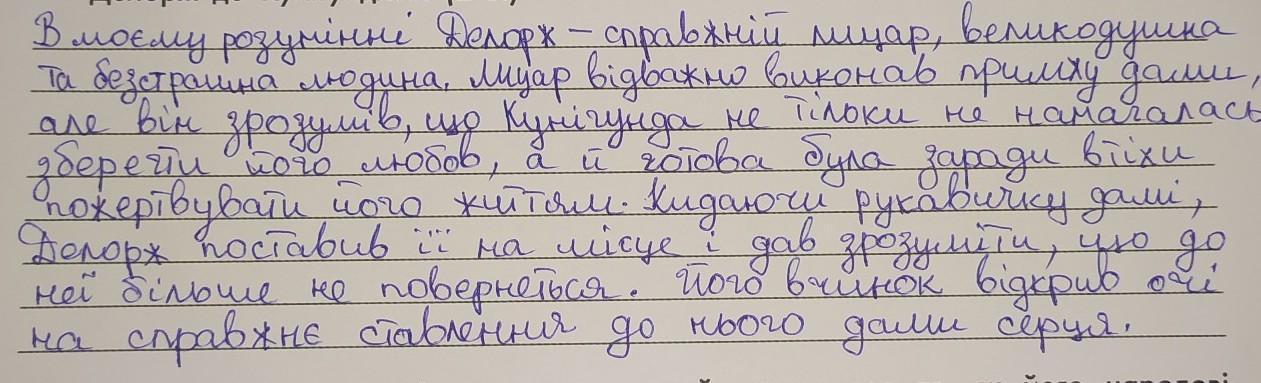 В моєму розумінні Делорж – справжній лицар, великодушна
та безстрашна людина. Лицар відважно виконав примху дами,
але він зрозумів, що Кунігунда не тільки не намагалась
зберегти його любов, а й готова була заради втіхи
пожертвувати його життям. Кидаючи рукавичку дамі,
Делорж поставив її на місце і дав зрозуміти, що до
неї більше не повернеться. Його вчинок відкрив очі
на справжнє ставлення до нього дами серця.